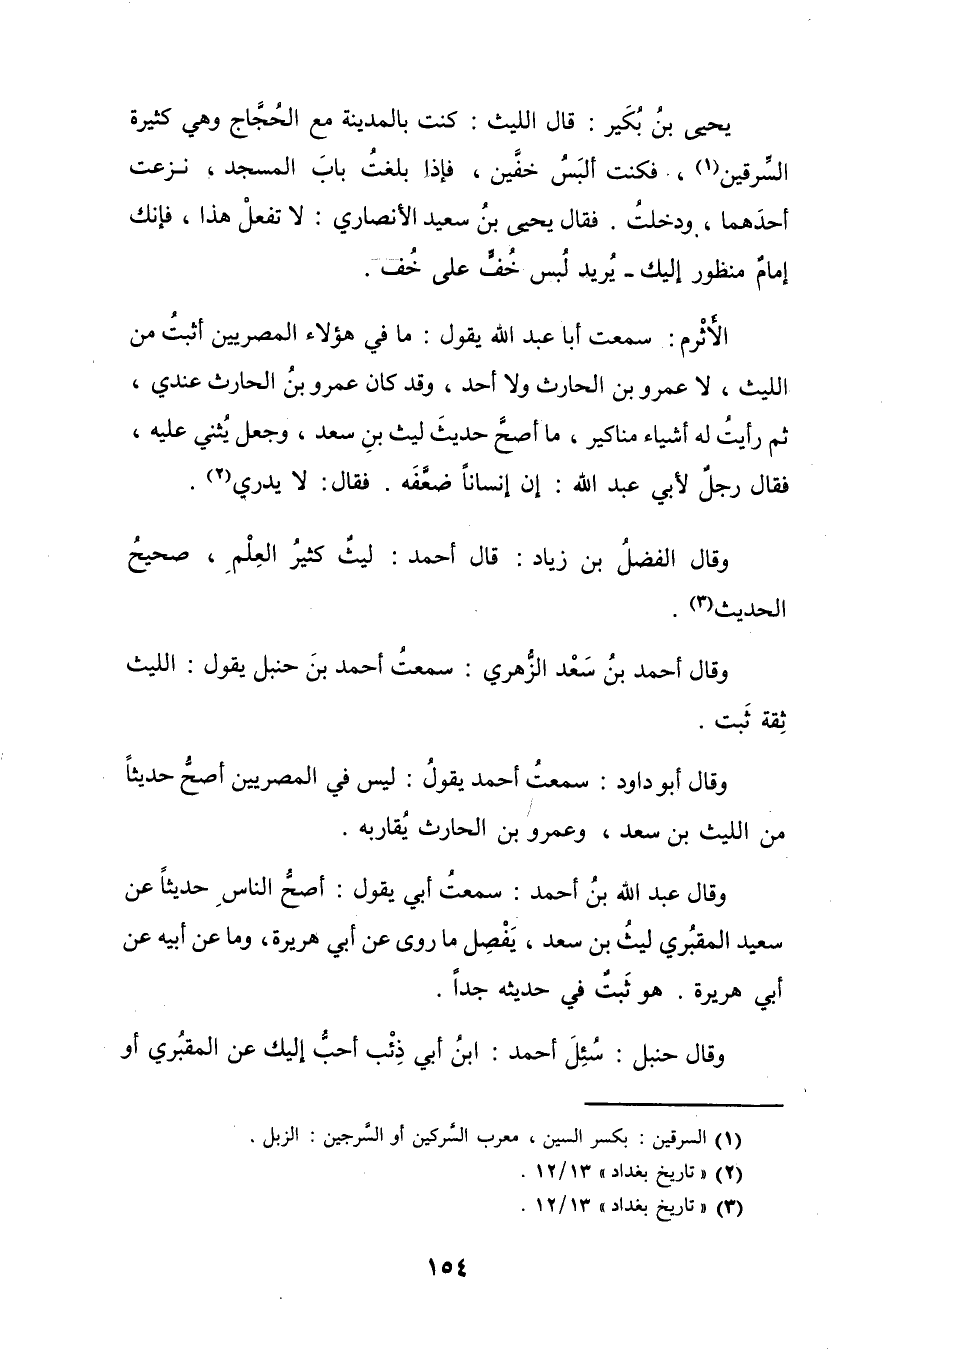 يحيى بنُ بُكَير : قال الليث : كنت بالمدينة مع الحُجَّاج وهي كثيرة
السِّرقين(١) ، فكنت ألبَسُ خفَّين ، فإذا بلغتُ بابَ المسجد ، نزعت
أحدَهما ، ودخلتُ . فقال يحيى بنُ سعيد الأنصاري : لا تفعلْ هذا ، فإنك
إمامٌ منظور إليك ـ يُريد لُبس خُفٍّ على خُف .
الأَثْرم : سمعت أبا عبد الله يقول : ما في هؤلاء المصريين أثبتُ من
الليث ، لا عمرو بن الحارث ولا أحد ، وقد كان عمرو بنُ الحارث عندي ،
ثم رأيتُ له أشياء مناكير ، ما أصحَّ حديثَ ليث بنِ سعد ، وجعل يُثني عليه ،
فقال رجلٌ لأبي عبد الله : إن إنساناً ضعَّفَه . فقال : لا يدري(٢) .
وقال الفضلُ بن زياد : قال أحمد : ليثٌ كثيرُ العِلْمِ ، صحيحُ
الحديث(٣) .
وقال أحمد بنُ سَعْد الزُّهري : سمعتُ أحمد بنَ حنبل يقول : الليث
ثِقة ثَبت .
وقال أبو داود : سمعتُ أحمد يقولُ : ليس في المصريين أصحُّ حديثاً
من الليث بن سعد ، وعمرو بن الحارث يُقاربه .
وقال عبد الله بنُ أحمد : سمعتُ أبي يقول : أصحُّ الناسِ حديثاً عن
سعيد المقبُري ليثُ بن سعد ، يَفْصِل ما روى عن أبي هريرة ، وما عن أبيه عن
أبي هريرة . هو ثَبتٌ في حديثه جداً .
وقال حنبل : سُئِلَ أحمد : ابنُ أبي ذِئْب أحبُّ إليك عن المقبُري أو
(١) السرقين : بكسر السين ، معرب السَّركين أو السَّرجين : الزبل .
(٢) « تاريخ بغداد » ١٢/١٣ .
(٣) « تاريخ بغداد » ١٢/١٣ .
١٥٤